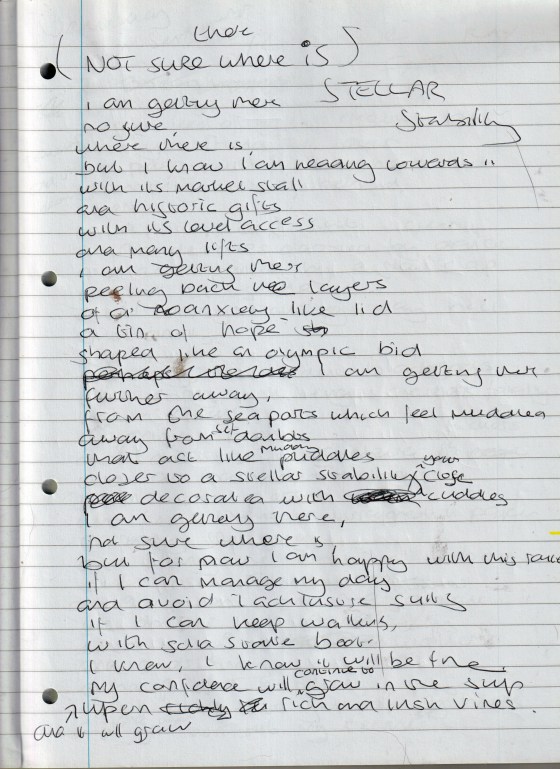 there
(NOT sure where is)
i am getting there STELLAR
no sure, Stability
where there is,
but I know I am heading towards it
with its market stall
and historic gifts
with its level access
and many lifts
I am getting there
peeling back layers
of anxiety like lid
a tin of hope
shaped like an olympic bid
I am getting there
further away,
from the sea parts which feel muddled
away from self doubts
that act like muddy puddles
closer to a stellar stability your close
decorated with cuddles
I am getting there,
not sure where is,
but for now I am happy with this
if I can manage my day
and avoid lacklustre
if I can keep walking,
with solid boot.
I know, I know it will be fine
My confidence will continue to grow in the
upon rich and lush vines.
and it will grow